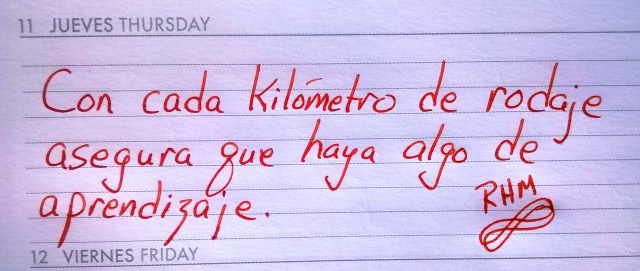 11 JUEVES THURSDAY
Con cada kilómetro de rodaje
asegura que haya algo de
aprendizaje.
RHM
12 VIERNES FRIDAY